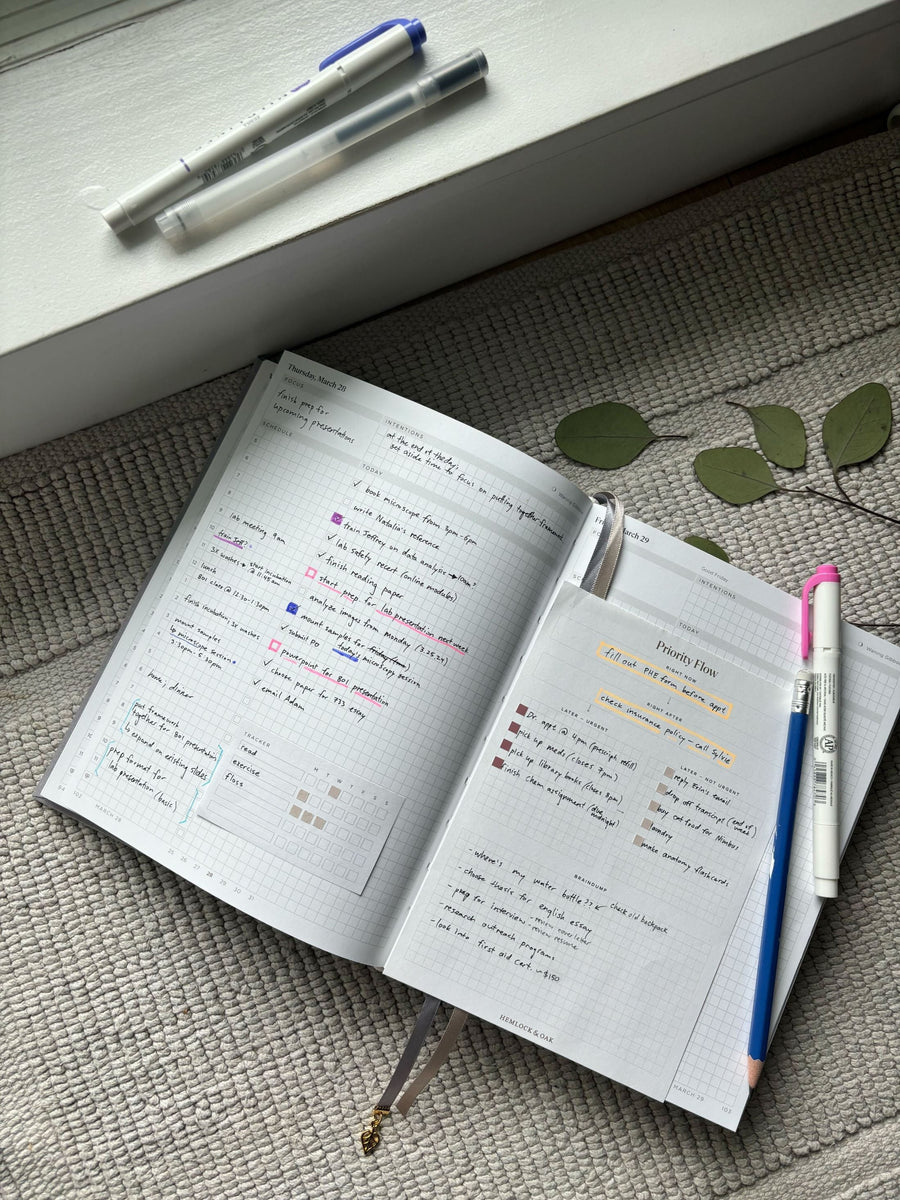 Thursday, March 28
FOCUS
finish prep for
upcoming presentations
INTENTIONS
at the end of the day,
set aside time to focus on putting together framework
SCHEDULE
5
6
8
9
lab meeting 9am
10
train Jeff?
11
3x washes → start incubation
@ 11:45am
12
lunch
1
801 class @ 12:30-1:30pm
2
finish incubation, 3x washes
3
mount samples
4
microscope session
3:30pm-5:30pm
5
6
home, dinner
put framework
together for 801 presentation
↳ expand on existing slides
prep format for
lab presentation (basic)
TODAY
✓ book microscope from 3pm-6pm
write Natalia's reference
train Jeffrey on data analysis → 10am?
✓ lab safety recert (online modules)
✓ finish reading paper
start prep for lab presentation next week
analyze images from Monday (3.25.24)
mount samples for today's microscopy session
✓ submit PO
powerpoint for 801 presentation
✓ choose paper for 733 essay
✓ email Adam
TRACKER
M T W T F S S
read
exercise
floss
94 102
MARCH 28
25 26 27 28 29 30
31
March 29
Good Friday
INTENTIONS
TODAY
Waning Gibbous
Priority Flow
RIGHT NOW
fill out PHE form before appt
RIGHT AFTER
check insurance policy - call Sylvie
LATER - URGENT
Dr. appt @ 4pm (prescript. refill)
pick up meds (closes 7pm)
pick up library books (closes 8pm)
finish chem assignment (due midnight)
LATER - NOT URGENT
reply Erin's email
drop off transcript (end of week)
buy cat food for Nimbus
laundry
make anatomy flashcards
BRAINDUMP
- where's my water bottle?? ← check old backpack
- choose thesis for english essay
- prep for interview - review cover letter
- review resume
- research outreach programs
- look into first aid cert. ~$150
HEMLOCK & OAK
MARCH 29
103